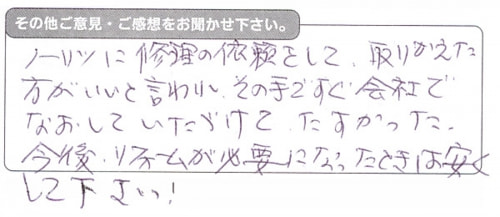 その他ご意見・ご感想をお聞かせ下さい。
ノーリツに修理の依頼をして、取りかえた
方がいいと言われ、その手ですぐ会社で
なおしていただけて、たすかった。
今後、リフォームが必要になったときは安く
して下さいっ!